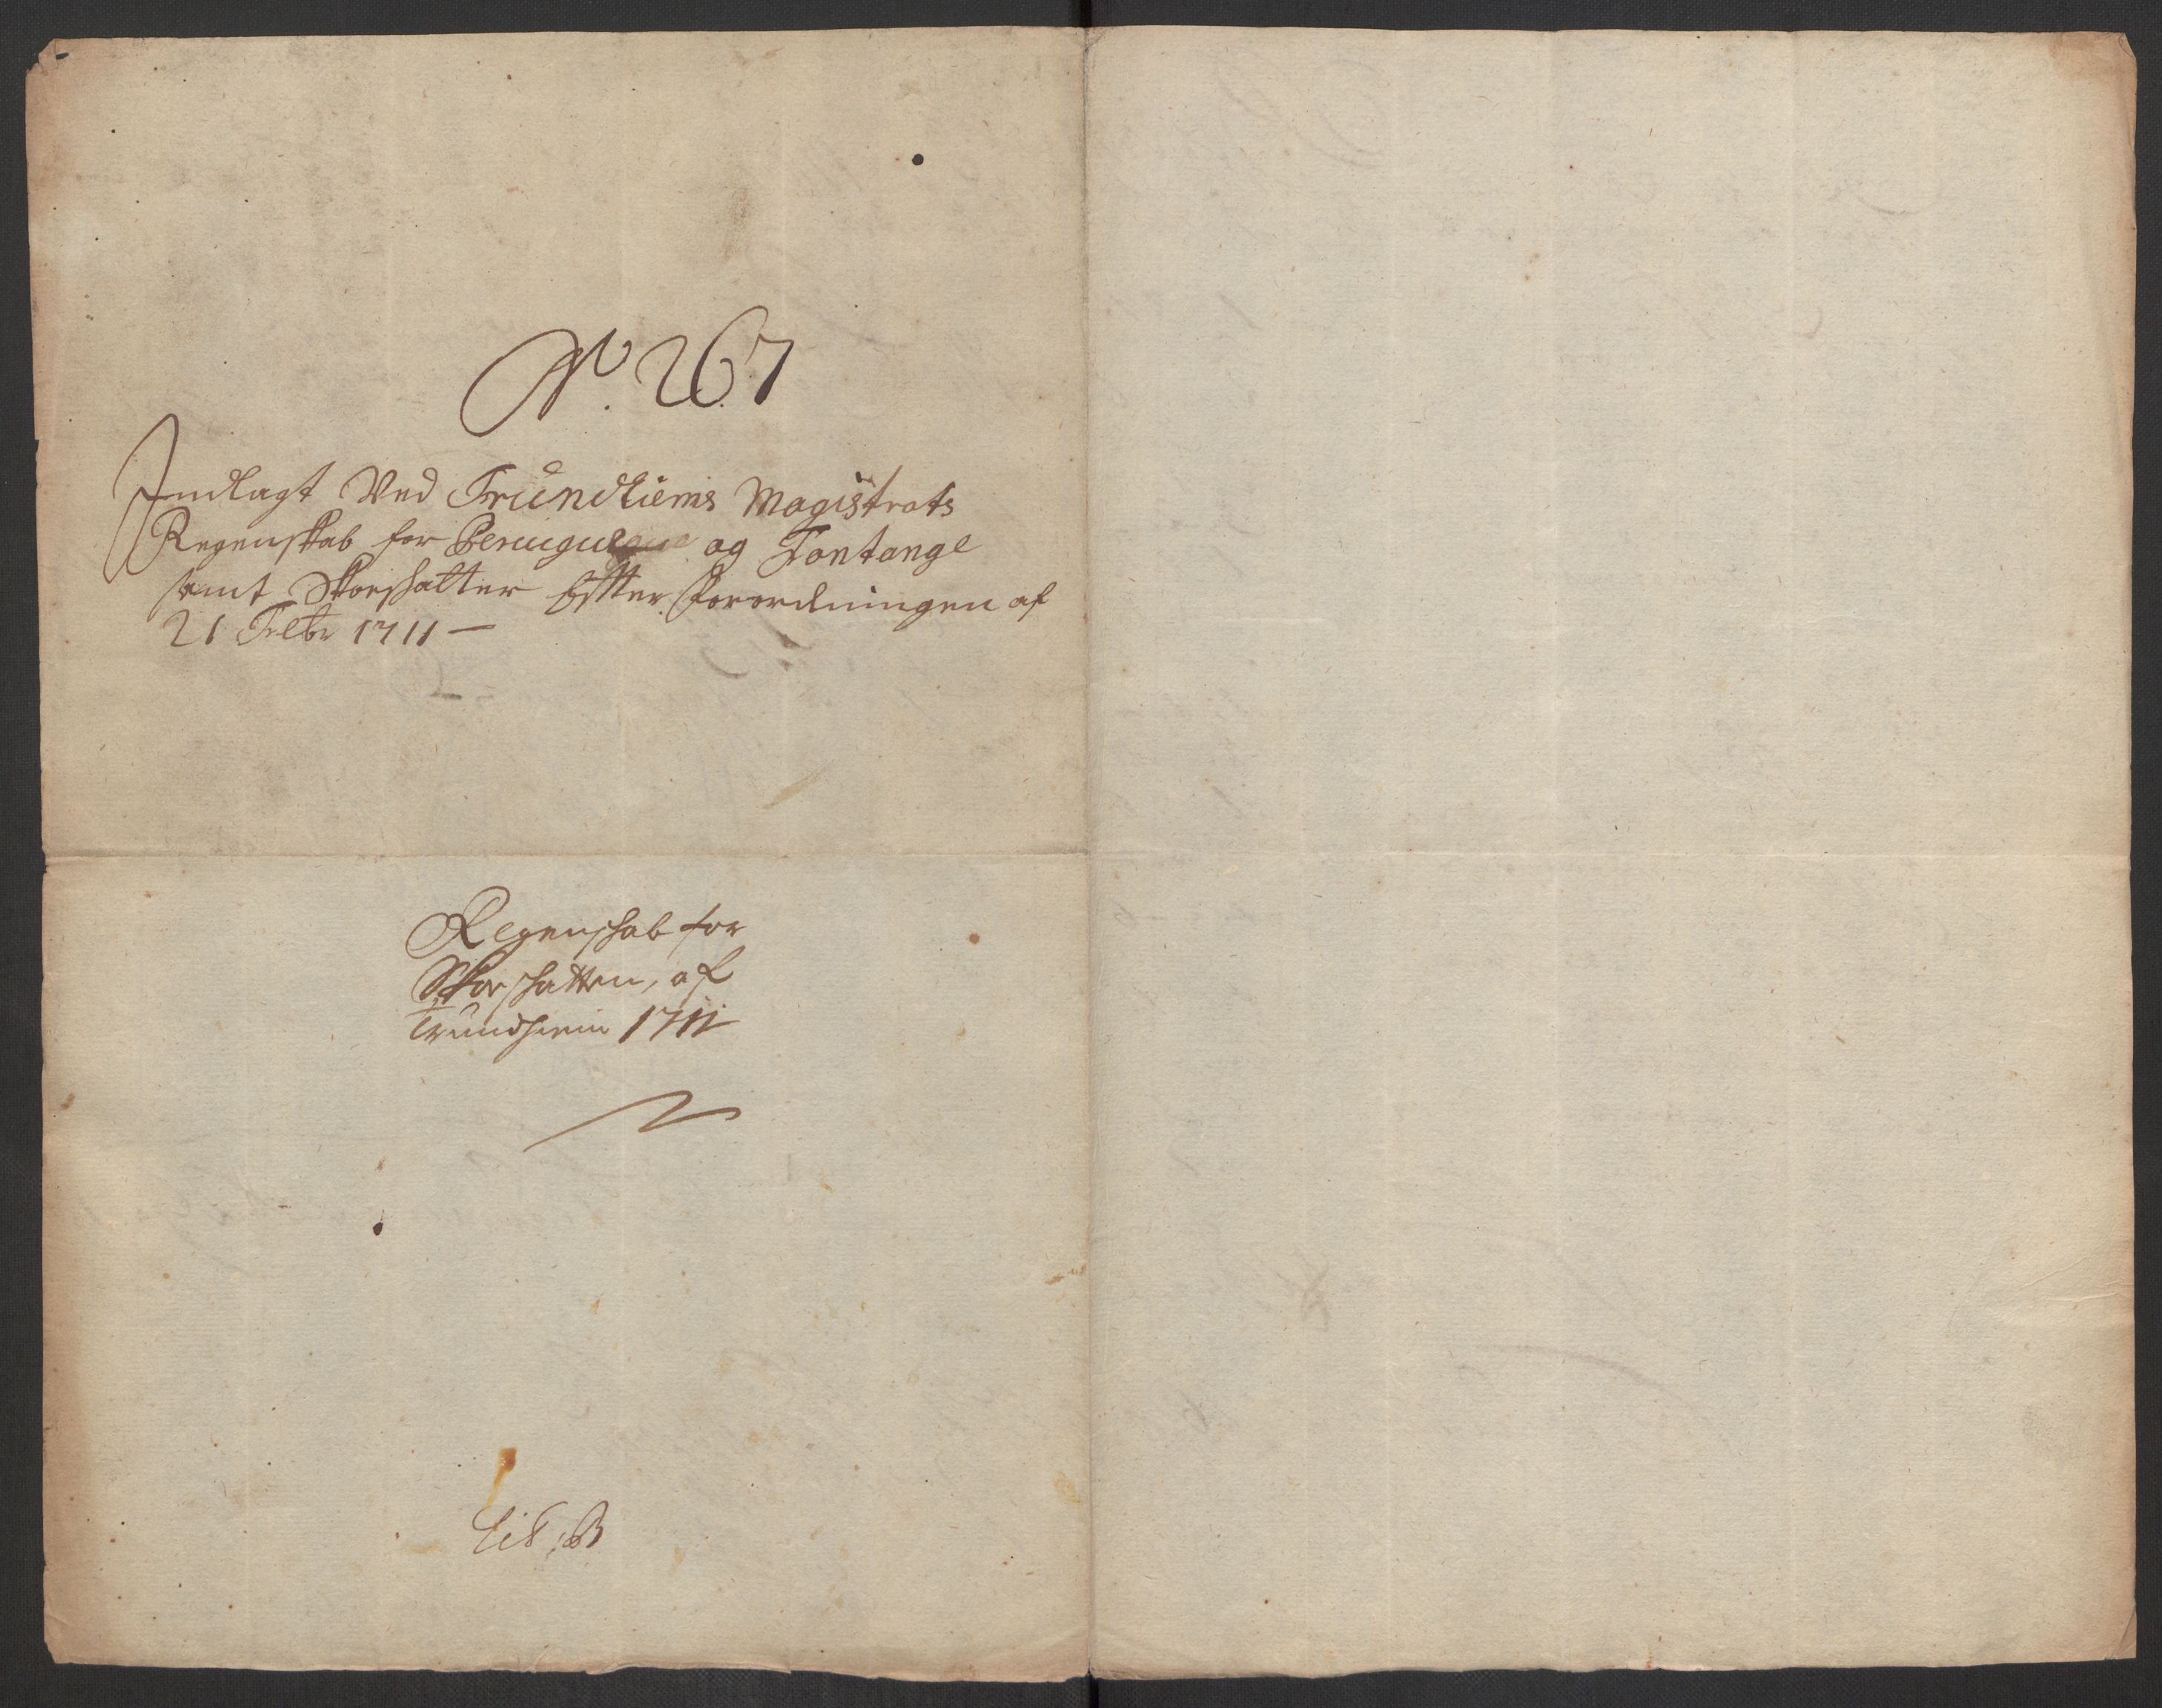 No. 267
Indlagt Ved Trundhiems Magistrats
Regenskab for Peruquer og Fontange
samt Skorshatter Effter Forordningen af
21 Febr 1711 —
Regenschab for
Skorshatten, af
Trundhiem 1711
Lit: B